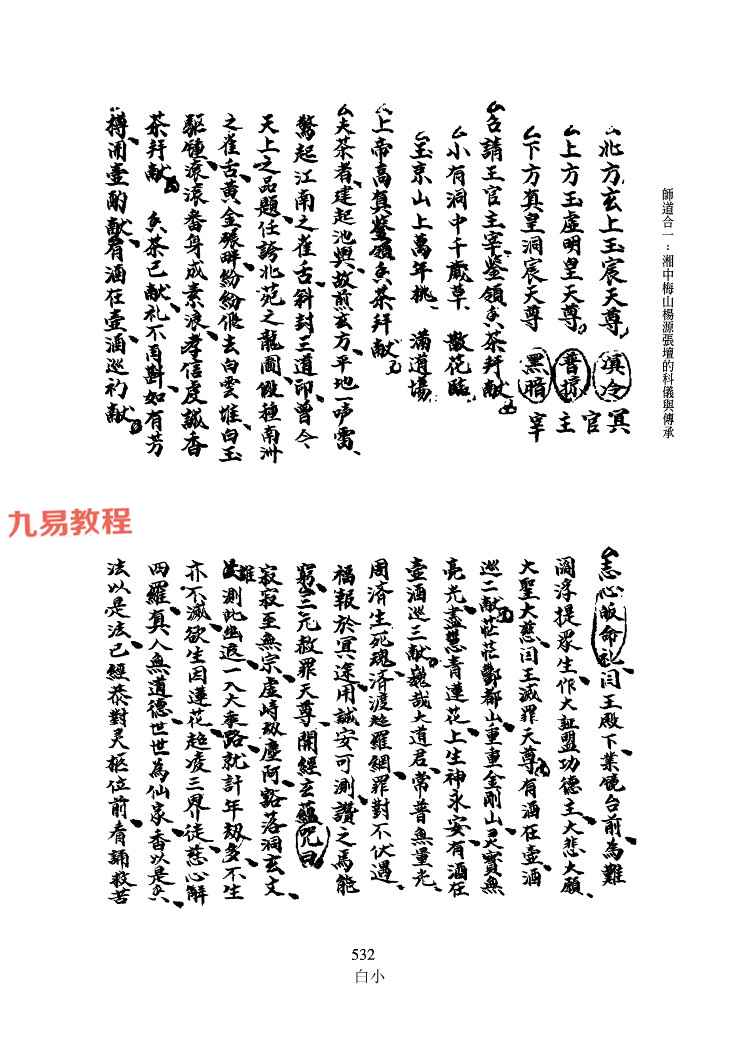 師道合一：湘中梅山楊源張壇的科儀與傳承
北方玄上玉宸天尊 滇冷 冥
上方玉虛明皇天尊 普掠 官主
下方真皇洞宸天尊 黑暗 宰
召請王官主宰鉴領香茶拜献
小有洞中千歲草 散花臨
玉京山上萬年桃 滿道場
上帝高真鉴領香茶拜献
夫茶者建起池興故煎玄方平地一声雷
驚起江南之雀舌斜封三道印曾令
天上之品題任誇北苑之龍團做種南洲
之雀舌黄金碾畔紛紛飛去白雲堆白玉
甌鍾滾滾番身成素浪孝信虔誠香
茶拜献 香茶已献礼不再斟如有芳
樽開壺酌献有酒在壺酒巡初献
志心皈命礼闫王殿下業镜台前為難
閻浮提眾生作大証盟功德主大悲大願
大聖大慈闫王滅罪天尊有酒在壺酒
巡二献茫茫酆都山重重金剛山灵寶無
亮光盡慧青蓮花上生神永安有酒在
壺酒巡三献巍哉大道君常普無量光
周济生死魂济渡超羅網罪對不伏遇
福報於冥途用誠安可測讚之焉能
窮三元救罪天尊開經玄蘊咒曰
寂寂至無宗虛峙劫塵阿豁落洞玄文
誰測此幽遐一入大乘路就計年劫多不生
亦不滅欲生因蓮花超凌三界徒慈心解
四羅真人無道德世世為仙家香以是香
法以是法已經恭對灵柩位前看誦救苦
九易教程
532
白小